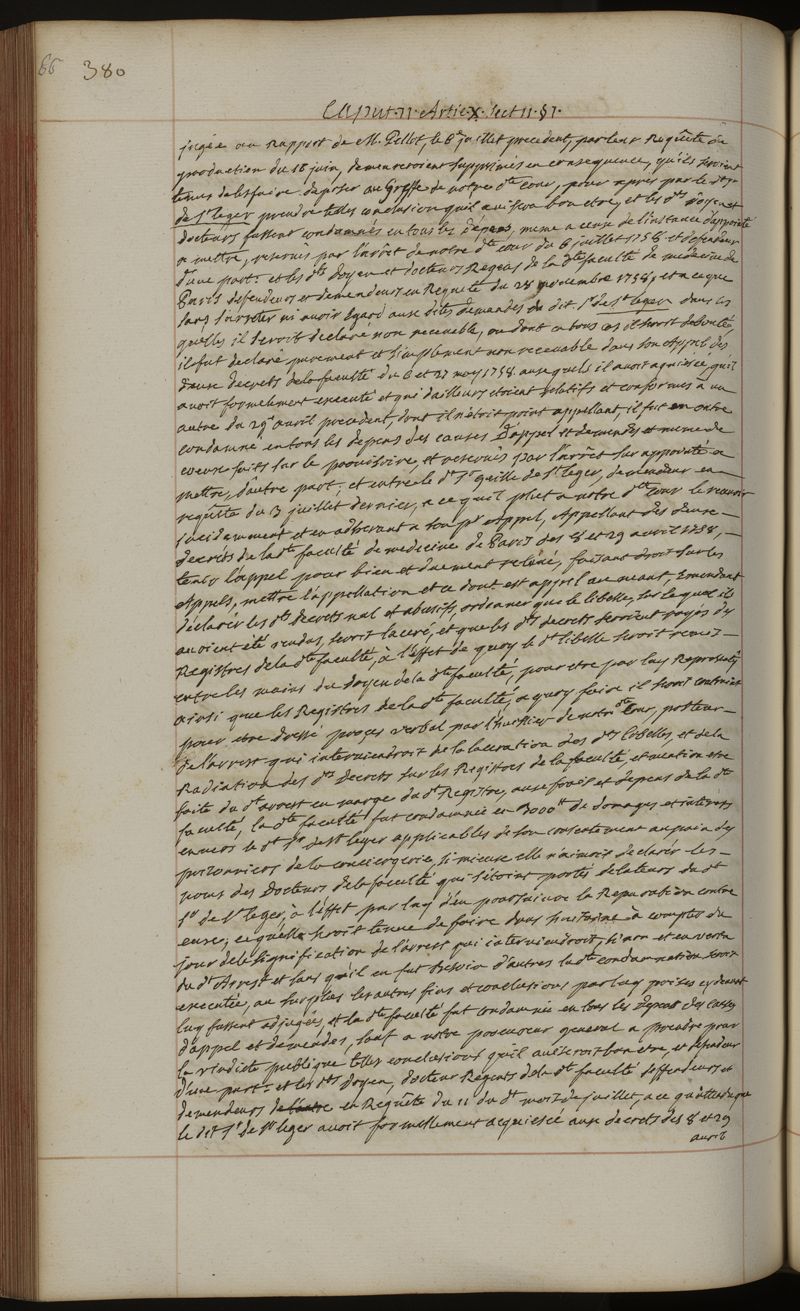 66 380
Caput. 11. Artic. X. Sect 11. §1.
jugée au Rapport de M. Pellot, le 6e juillet precedent, par leur Requête de
production du 16 juin, demeureroient supprimés en consequence, qu'ils seroient
tenus de les faire deposer au Greffe de notre dte cour, pour apres par le dt Sr
de St leger prendre telles conclusions qu'il aviseroit bon etre, et les dts doyen et
docteurs fussent condamnés en tous les depens, meme a ceux de l'instance d'appointé
a mettre, reservés par l'arrêt de notre dte cour du 6 juillet 1758 et defendeur
d'une part: et les dts doyen et docteurs Regens de la dte faculté de medecine de
Paris defendeurs et demandeurs en Requête du 28 novembre 1758, et a ce que
sans s'arrêter ni avoir Egard aux dites demandes du dit Sr de St leger dans les
quelles il seroit declaré non recevable, ou dont en tous cas il seroit debouté,
il fut declaré purement et simplement non recevable dans son Appel des
deux decrets de la faculté du 6 et 27 may 1758 auxquels il avoit aquiescé, qu'il
avoit formelement executé et qui d'ailleurs etoient relatifs et conformes a un
autre du 29e avril precedent, dont il n'étoit point appellant, il fut en outre
condamné en tous les depens des causes d'appel et demandes et meme de
ceux faits sur le provisoire, et reservés par l'arrêt sur appointé a
mettre, d'autre part; et entre le dt Sr Guille de St leger, demandeur en
requête du 3 juillet dernier, a ce qu'il plut a notre dte Cour le recevoir
incidemment et en adherant a son pr Appel, Appellant des deux
decrets de la dte faculté de medecine de Paris des 8 et 29 avril 1758,
tenir l'appel pour bien et duement relevé, faisant droit sur les
Appels, mettre l'appellation et ce dont est appel au neant, Emendant
déclarer les dts decrets nul et abusifs, ordonner que le libelle, sur lequel ils
avoient été rendus, seroit laceré, et que les dts decrets seroient rayés des
Registres de la dte faculté, à l'effet de quoy le dt libelle seroit remis
entre les mains du doyen de la dte faculté, pour etre par luy Representé
ainsi que les Registres de la dte faculté, a quoy faire il seroit contraint
pour etre dressé procez verbal par l'huissier de notre dte Cour, porteur
de l'arrest qui interviendroit de la laceration des dts libelles, et de la
Radiation des dts decrets sur les Registres de la faculté, et mention etre
faite du dt arrest en marge du dt Registre, aux frais et depens de la dte
faculté, la dte faculté fut condamnée en 3000tt de domages et interets
envers le dt Sr de St leger applicables de son consentement au pain des
prisonniers de la conciergerie, si mieux elle n'aimoit declarer les
noms des Docteurs de la faculté qui s'étoient portés delateurs du dt
Sr de St leger, à l'effet par luy d'en poursuivre la Reparation contre
eux, ce qu'elle seroit tenue de faire dans huitaine à compter du
jour de la signification de l'arrest qui interviendroit, sinon et en vertu
du dt Arrest et sans qu'il en fut besoin d'autres la dte condamnation seroit
executée, au surplus les autres fins et conclusions par luy prises cy devant
luy fussent adjugées, et la dte faculté fut condamnée en tous les depens des causes
d'appel et demandes, sauf a notre procureur general a prendre pour
la vindicte publique telles conclusions qu'il aviseroit bon etre, et defendeur
d'une part: et les dts doyen, docteur Regents de la dte faculté deffendeurs et
demandeurs en Requête du 11 du dt mois de juillet, a ce qu'attendu que
le dit Sr de St leger avoit formellement acquiescé aux decrets des 8 et 29
avril